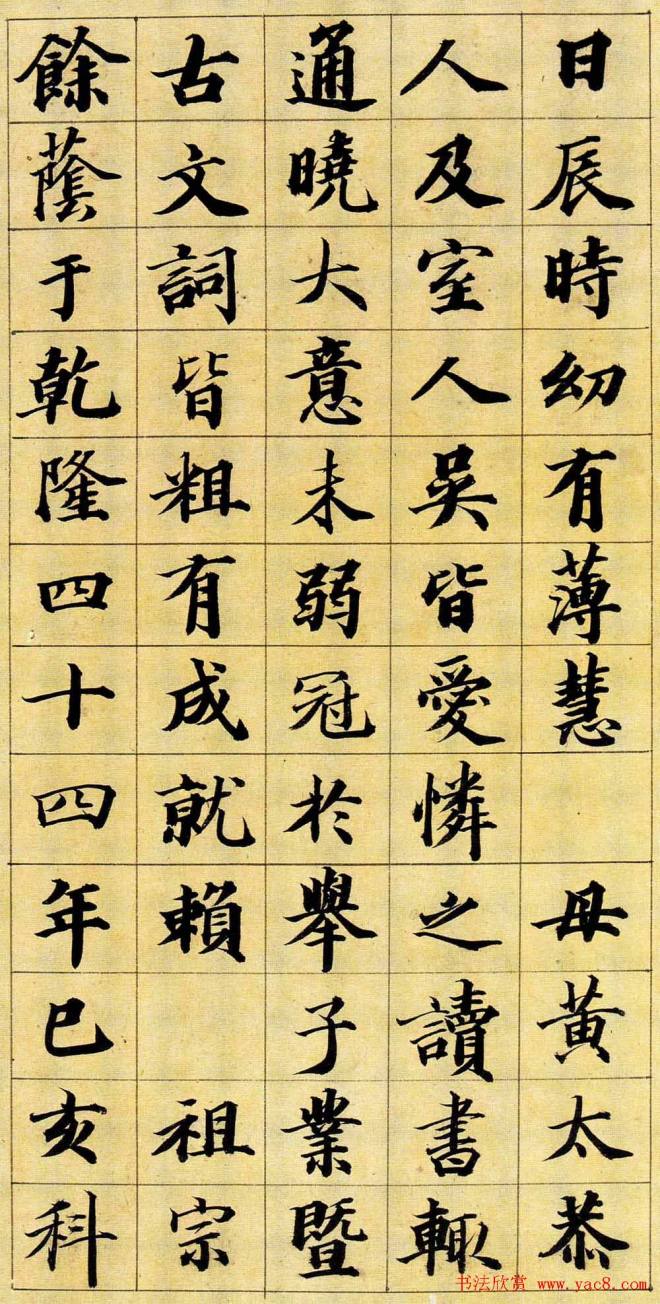 日辰時幼有薄慧 母黃太恭
人及室人吳皆愛憐之讀書輒
通曉大意未弱冠於舉子業暨
古文詞皆粗有成就賴 祖宗
餘蔭于乾隆四十四年巳亥科
书法欣赏 www.yac8.com